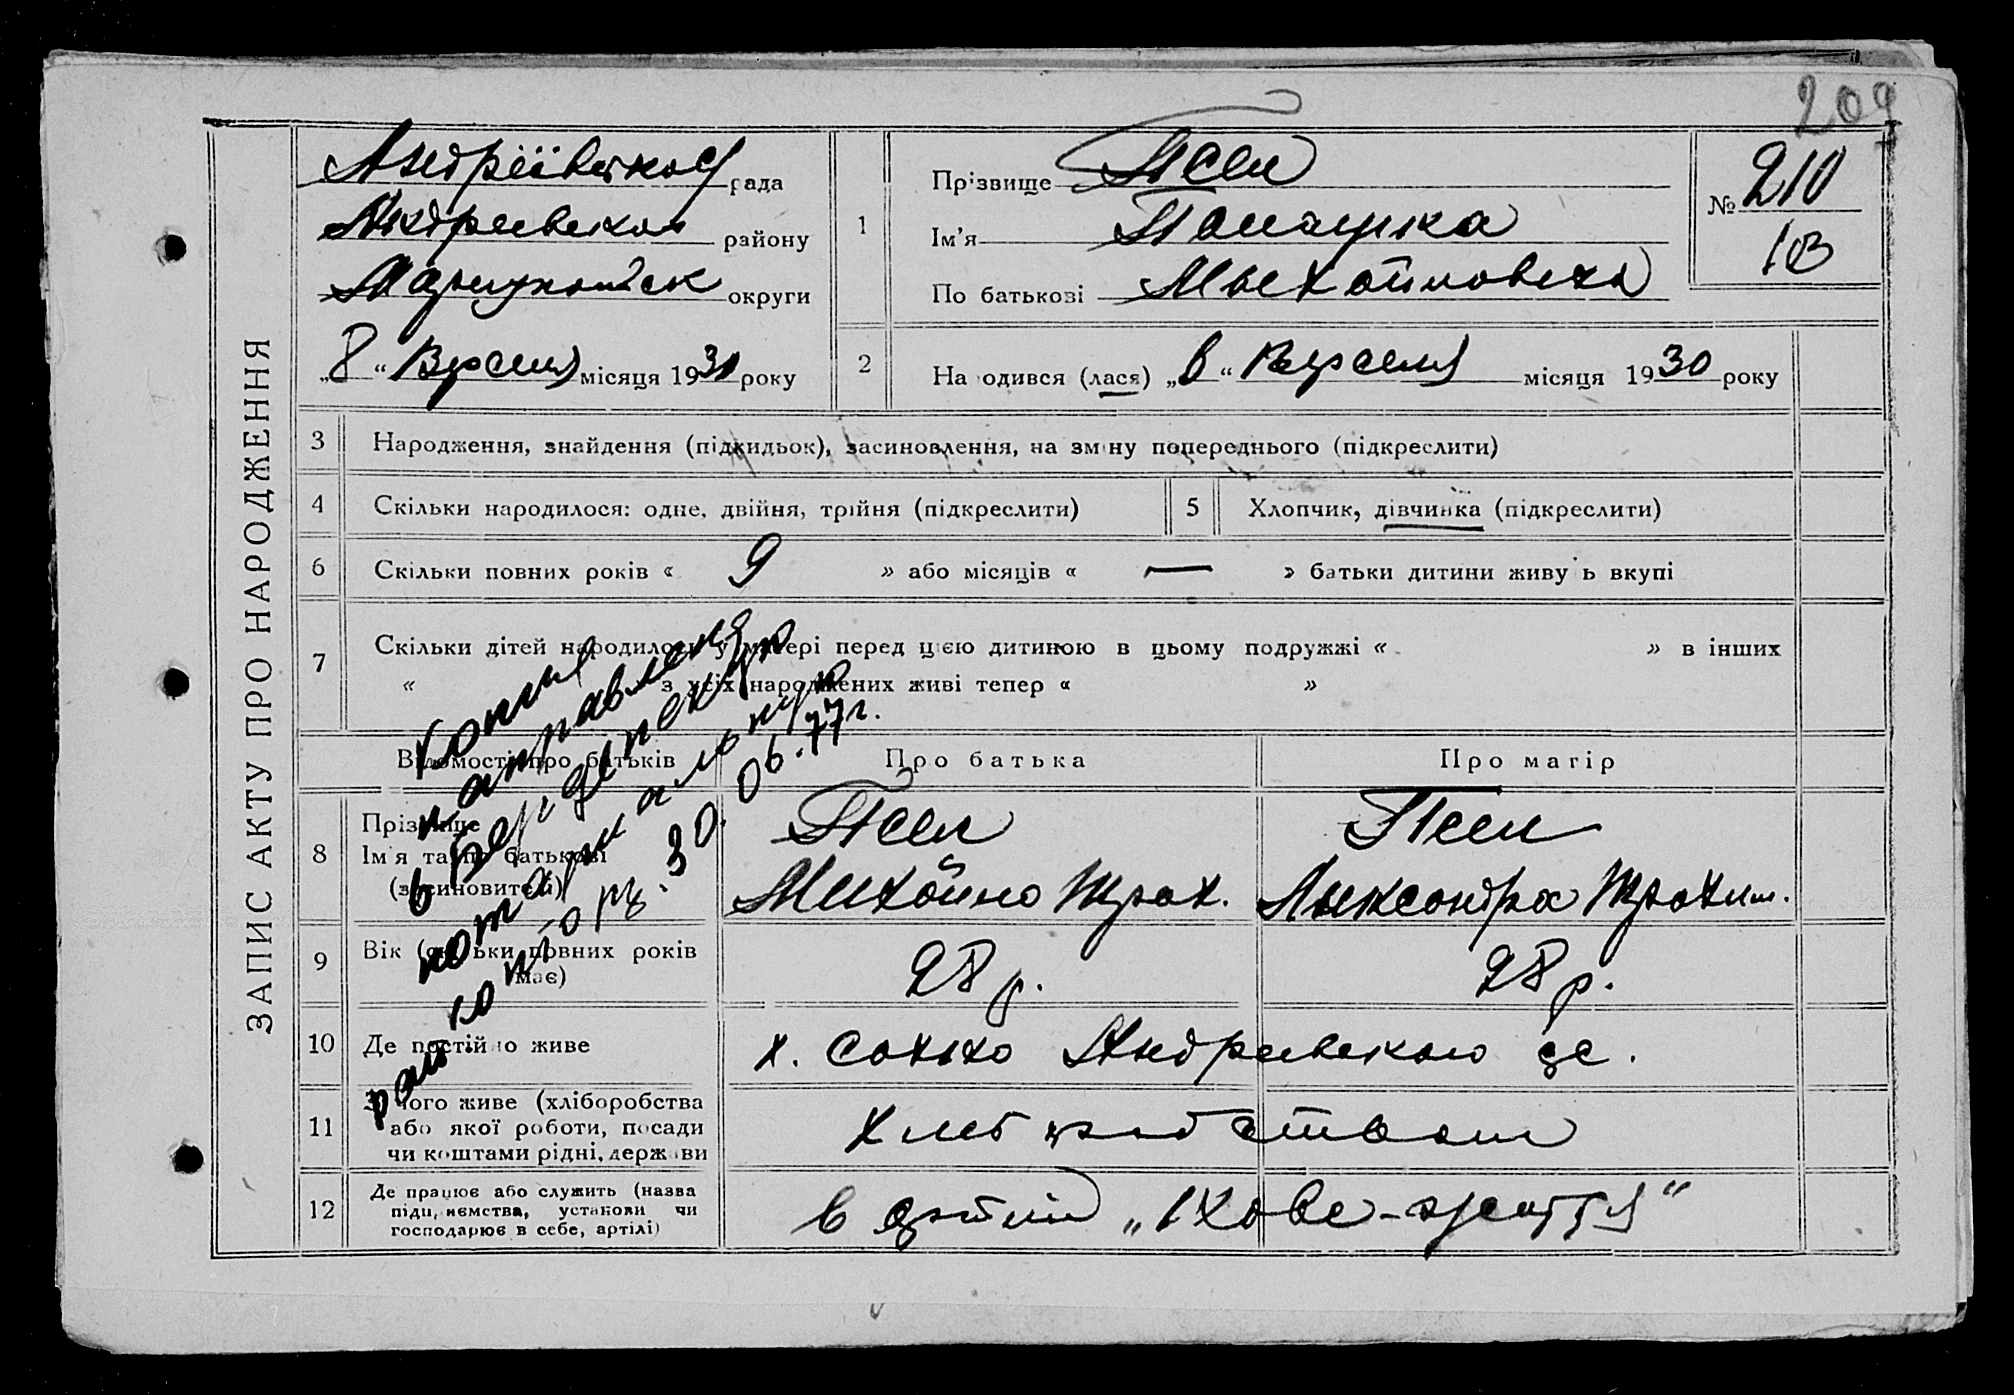 209
ЗАПИС АКТУ ПРО НАРОДЖЕННЯ
Андріївської рада
Андреевской району
Мариупольск округи
„8“ Вересня місяця 1930 року
1
Прізвище Псел
Ім'я
По батькові Михайловна
№ 210
2
Народився (лася) „6“ Вересня місяця 1930 року
3 Народження, знайдення (підкидьок), засиновлення, на зміну попереднього (підкреслити)
4 Скільки народилося: одне, двійня, трійня (підкреслити)
5 Хлопчик, дівчинка (підкреслити)
6 Скільки повних років « 9 » або місяців « — » батьки дитини живуть вкупі
7 Скільки дітей народилось у матері перед цією дитиною в цьому подружжі « » в інших
« з усіх народжених живі тепер « »
Відомості про батьків Про батька Про матір
8 Прізвище
Ім'я та по батькові
(засиновителі)
Псел
Михайло Трох.
Псел
Александра Трохим.
9 Вік (скільки повних років
має)
28 р.
28 р.
10 Де постійно живе
х. Сохихо Андреевского с
11 З чого живе (хліборобства
або якої роботи, посади
чи коштами рідні, держави
Хлеборобством
12 Де працює або служить (назва
підприємства, установи чи
господарює в себе, артілі)
в артілі „Нове-життя“
Копия
направлена
в Бердянскую
нотариальную
контору. 30.06.77г.